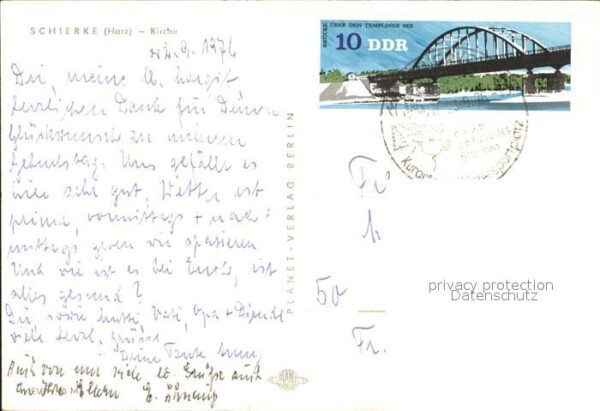 SCHIERKE (Harz) – Kirche
9. 1976
Dir, meine lb.
herzlichen Dank für Deinen
Glückwunsch zu meinem
Geburtstag. Uns gefällt es
sehr gut, Wetter ist
prima, vormittags + nach-
mittags gehen wir spazieren
Und wie ist es bei Euch, ist
alles gesund?
Dir sowie Mutti, Vati, Opa +
viele herzl. Grüße
Deine Tante
Auch von uns viele lb. Grüße auch
an Ihre Eltern
PLANET-VERLAG BERLIN
BRÜCKE ÜBER DEN TEMPLINER SEE
10 DDR
Kurort
50
Fr.
privacy protection
Datenschutz